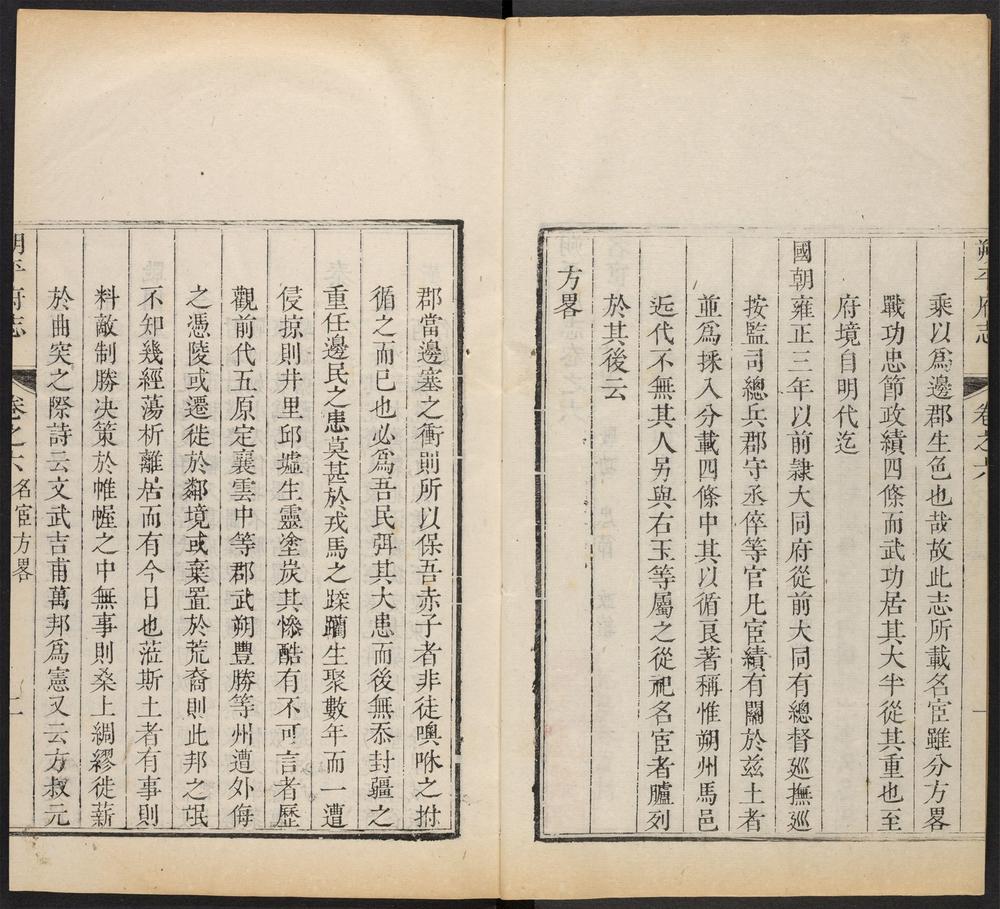 朔平府志
卷之六
一
乘以爲邊郡生色也哉故此志所載名宦雖分方畧
戰功忠節政績四條而武功居其大半從其重也至
府境自明代迄
國朝雍正三年以前隷大同府從前大同有總督廵撫廵
按監司總兵郡守丞倅等官凡宦績有關於兹土者
並爲採入分載四條中其以循良著稱惟朔州馬邑
近代不無其人另與右玉等屬之從祀名宦者臚列
於其後云
方畧
郡當邊塞之衝則所以保吾赤子者非徒噢咻之拊
循之而已也必爲吾民弭其大患而後無忝封疆之
重任邊民之患莫甚於戎馬之蹂躪生聚數年而一遭
侵掠則井里邱墟生靈塗炭其慘酷有不可言者歷
觀前代五原定襄雲中等郡武朔豐勝等州遭外侮
之憑陵或遷徙於鄰境或棄置於荒裔則此邦之氓
不知幾經蕩析離居而有今日也蒞斯土者有事則
料敵制勝決策於帷幄之中無事則桑土綢繆徙薪
於曲突之際詩云文武吉甫萬邦爲憲又云方叔元
朔平府志
卷之六 名宦方畧
二